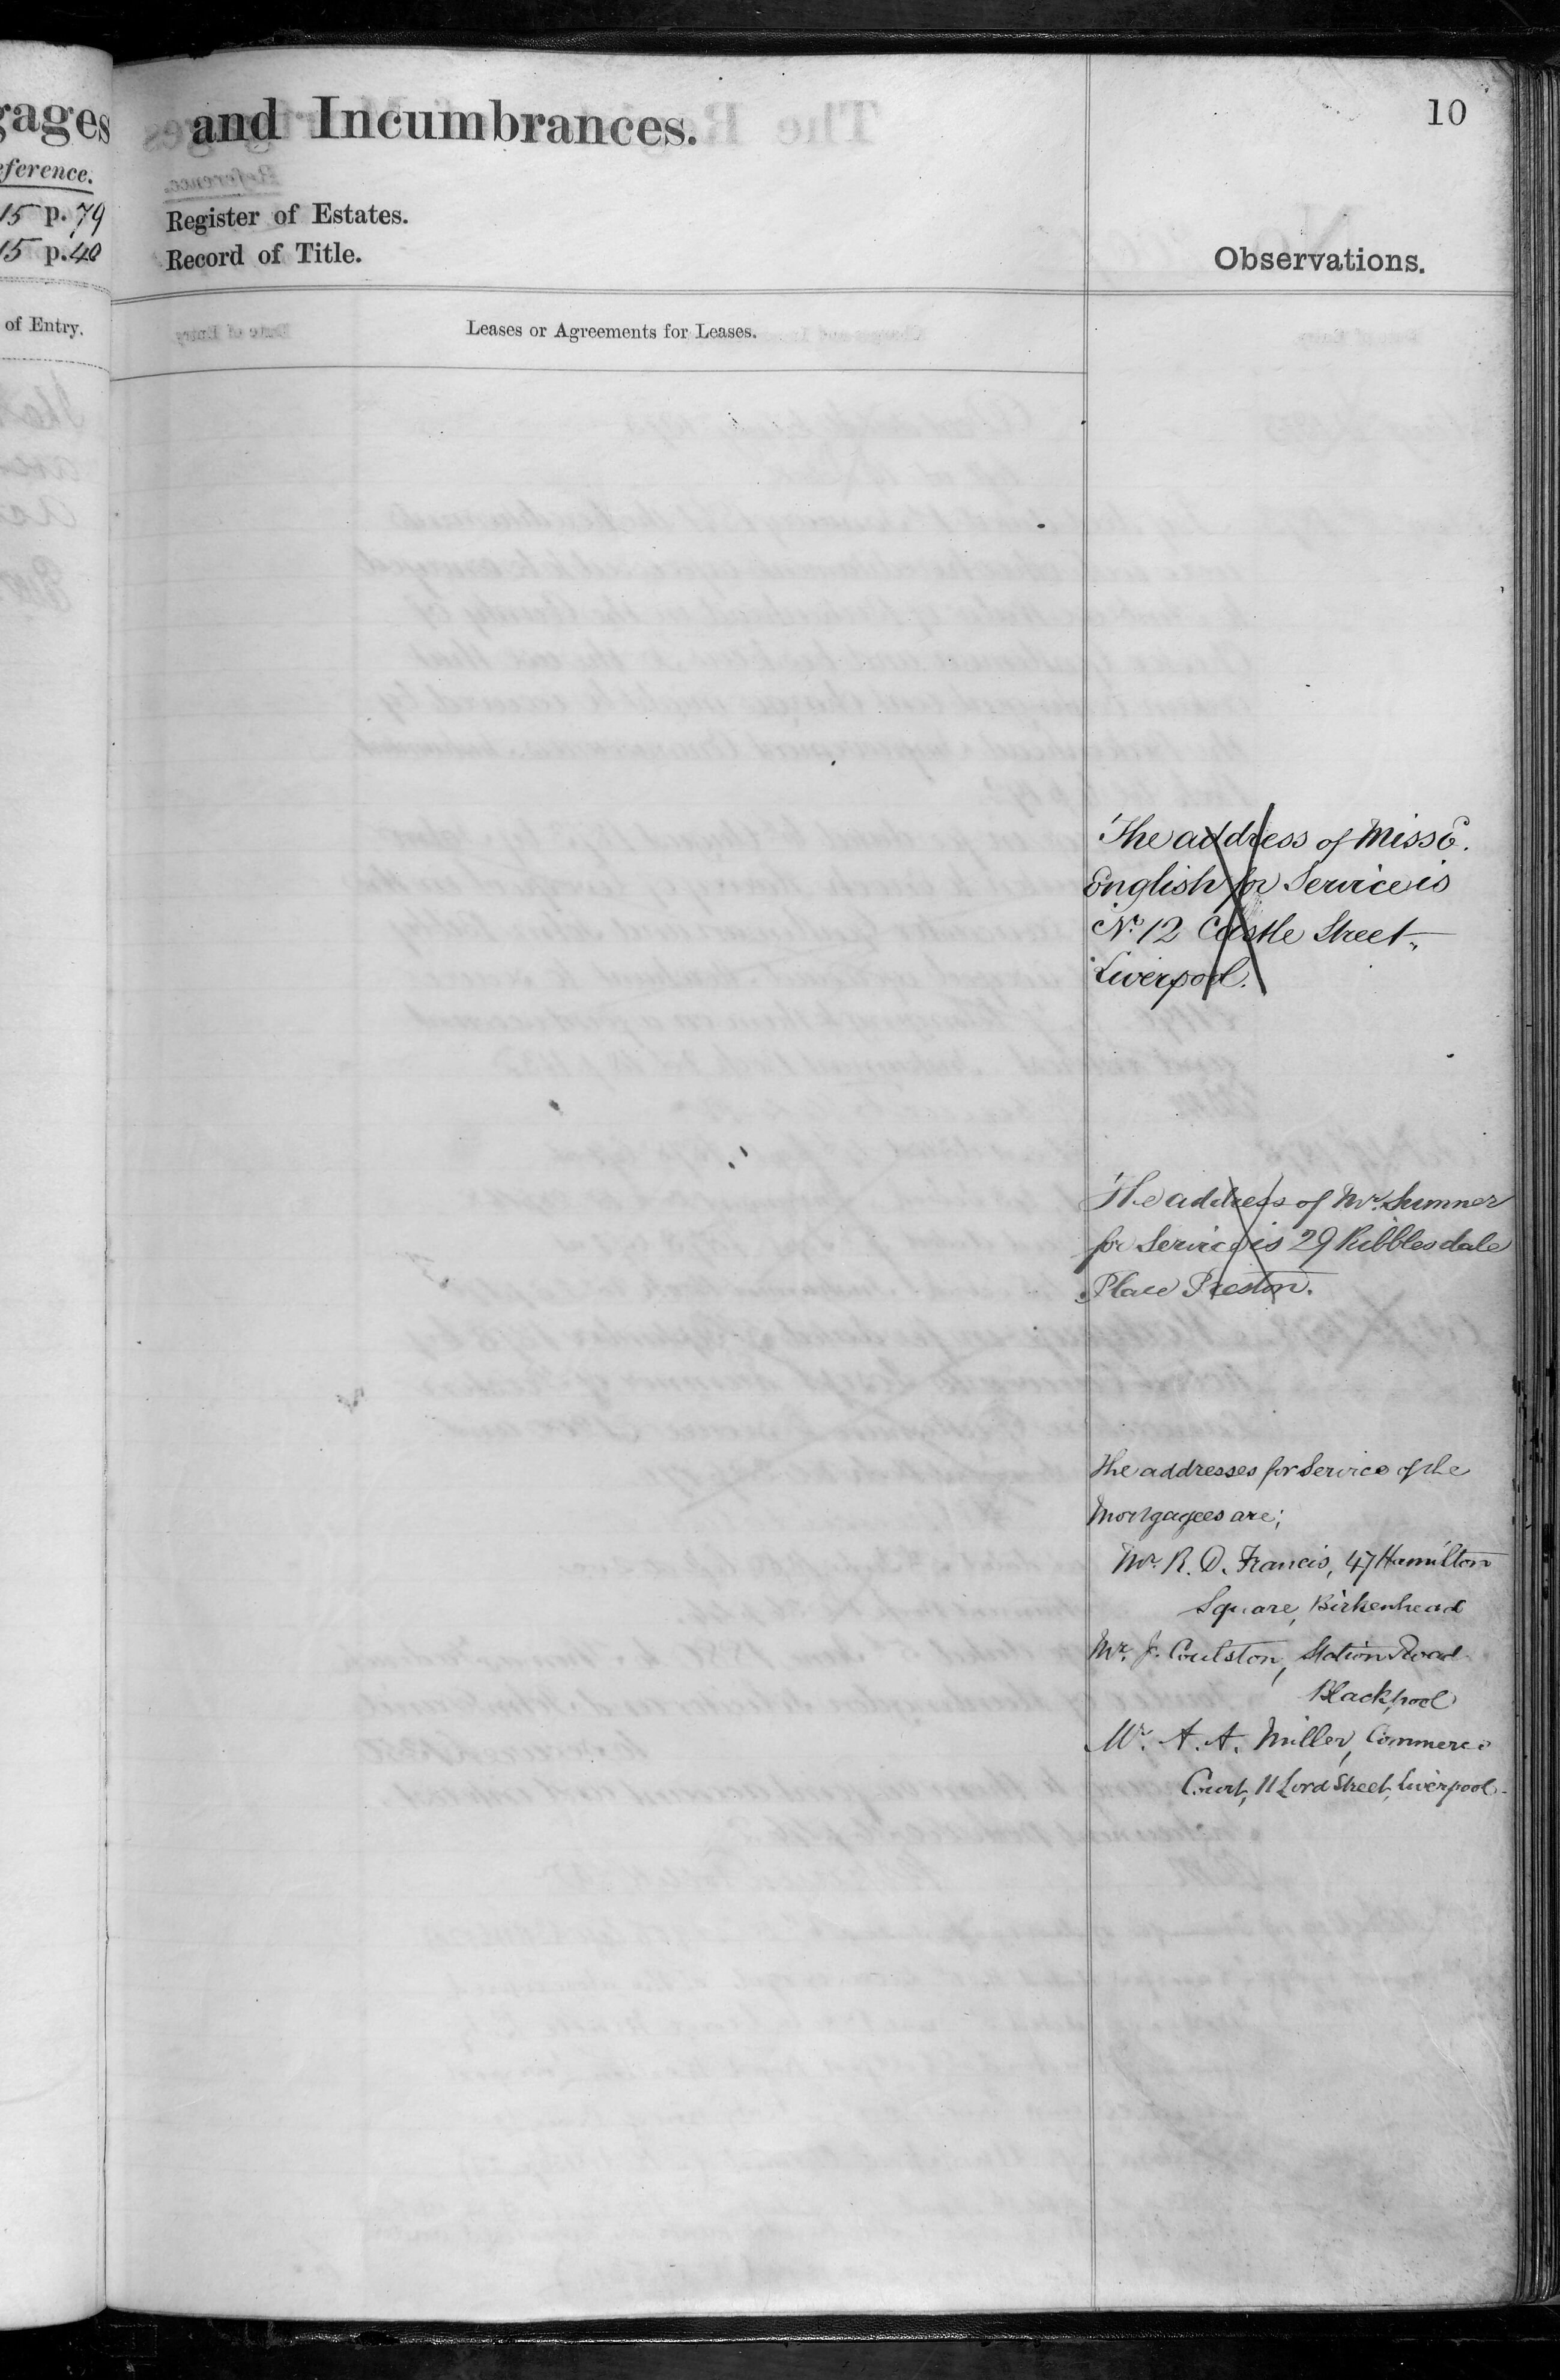 gages
eference.
15 p. 79
15 p. 40
of Entry.
and Incumbrances.
10
Register of Estates.
Record of Title.
Observations.
Leases or Agreements for Leases.
The address of Miss E.
English for Service is
No. 12 Castle Street
Liverpool.
The address of Mr. Sumner
for Service is 29 Ribblesdale
Place Preston.
The addresses for Service of the
Mortgagees are;
Mr. R. D. Francis, 47 Hamilton
Square, Birkenhead
Mr. J. Coulston, Station Road
Blackpool
Mr. A. A. Miller, Commerce
Court, 11 Lord Street, Liverpool.